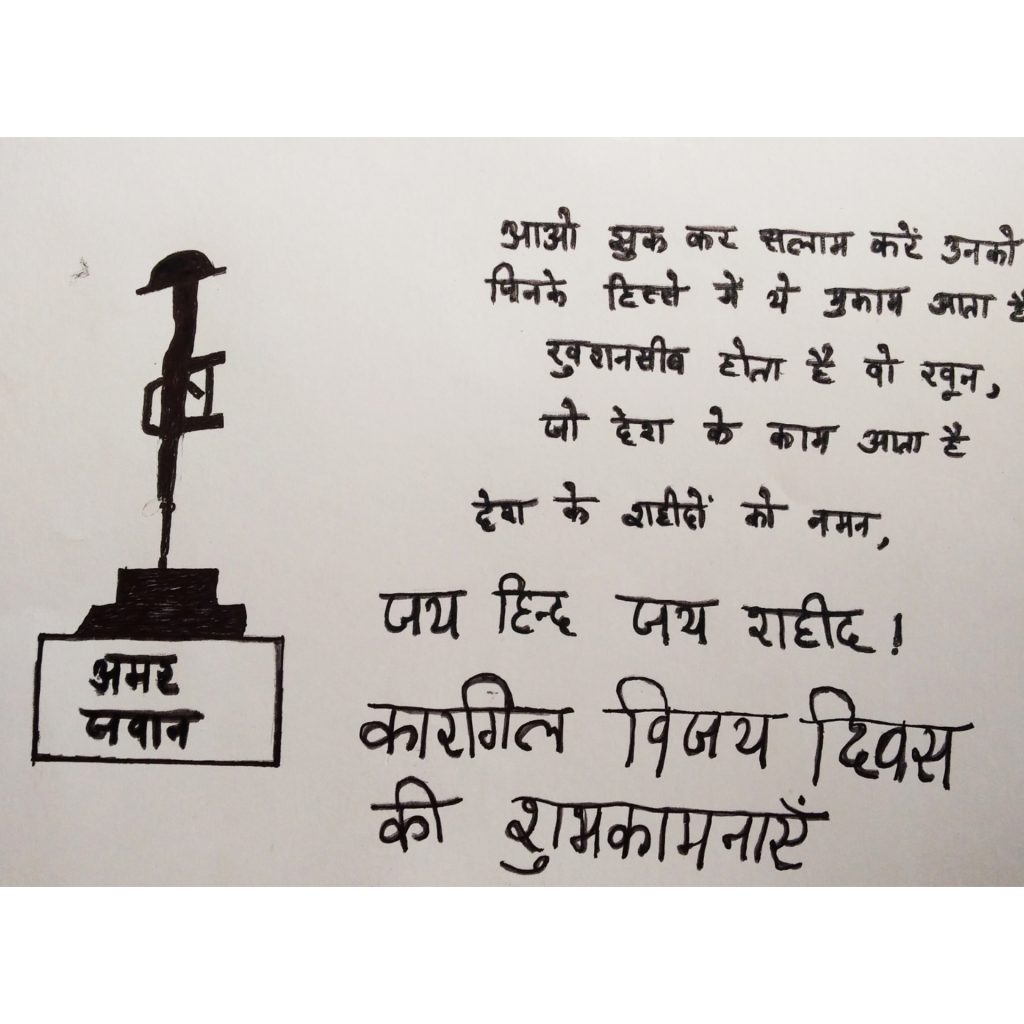 आओ झुक कर सलाम करें उनको
जिनके हिस्से में ये मुकाम आता है
खुशनसीब होता है वो खून,
जो देश के काम आता है
देश के शहीदों को नमन,
जय हिन्द जय शहीद!
कारगिल विजय दिवस
की शुभकामनाएँ
अमर
जवान